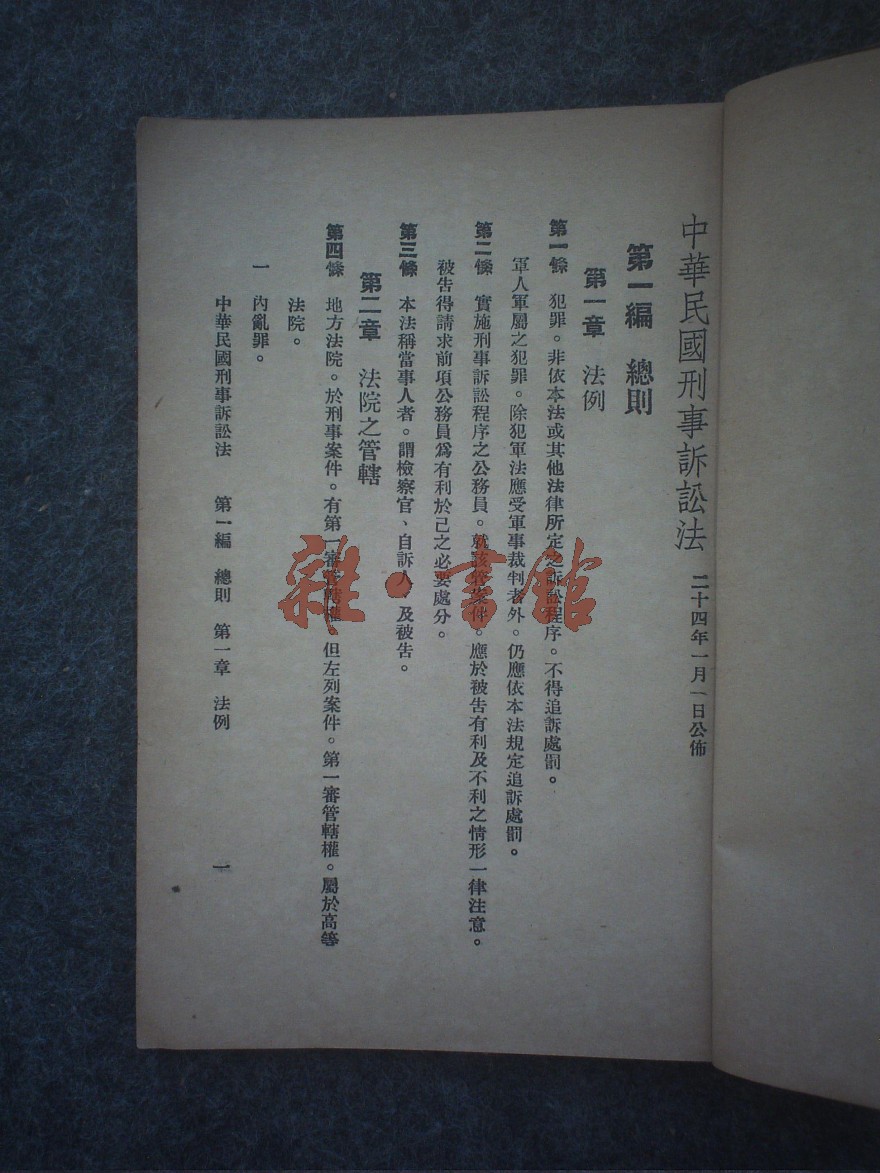 中華民國刑事訴訟法 二十四年一月一日公佈
第一編 總則
第一章 法例
第一條 犯罪。非依本法或其他法律所定之訴訟程序。不得追訴處罰。
軍人軍屬之犯罪。除犯軍法應受軍事裁判者外。仍應依本法規定追訴處罰。
第二條 實施刑事訴訟程序之公務員。就該管案件。應於被告有利及不利之情形一律注意。
被告得請求前項公務員爲有利於己之必要處分。
第三條 本法稱當事人者。謂檢察官、自訴人、及被告。
第二章 法院之管轄
第四條 地方法院。於刑事案件。有第一審管轄權。但左列案件。第一審管轄權。屬於高等
法院。
一 內亂罪。
中華民國刑事訴訟法 第一編 總則 第一章 法例 一
雜·書館